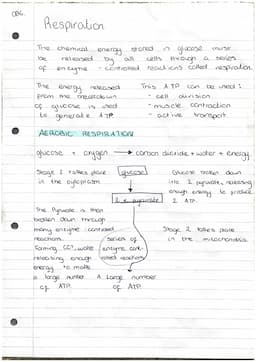 Respiration
The chemical energy stored in glucose must
be released by all cells through a series
of enzyme - controlled reactions called respiration.
The energy released
from the breakdown
of glucose is used
to generate ATP
This ATP can be used:
- cell division
- muscle contraction
- active transport
AEROBIC RESPIRATION
glucose + oxygen → carbon dioxide + water + energy
Stage 1 takes place
in the cytoplasm
glucose
2 x pyruvate
Glucose broken down
into 2 pyruvate, releasing
enough energy to produce
2 ATP.
The Pyruvate is then
broken down through
many enzyme controlled
reactions.
forming CO², water
releasing enough
energy to make
a large number
of ATP.
series of
enzyme cont-
rolled reactions
A Large number
of ATP.
Stage 2 takes place
in the mitochondria.